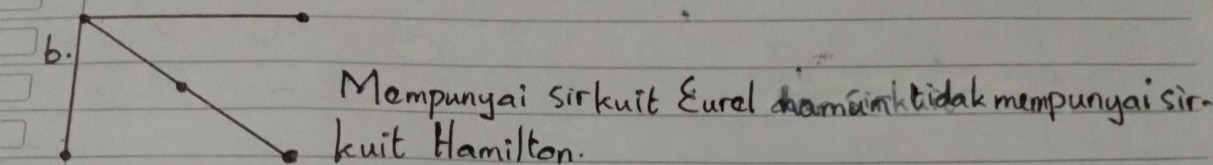 b.
Mempunyai sirkuit Eurel tidak mempunyai sir-
kuit Hamilton.